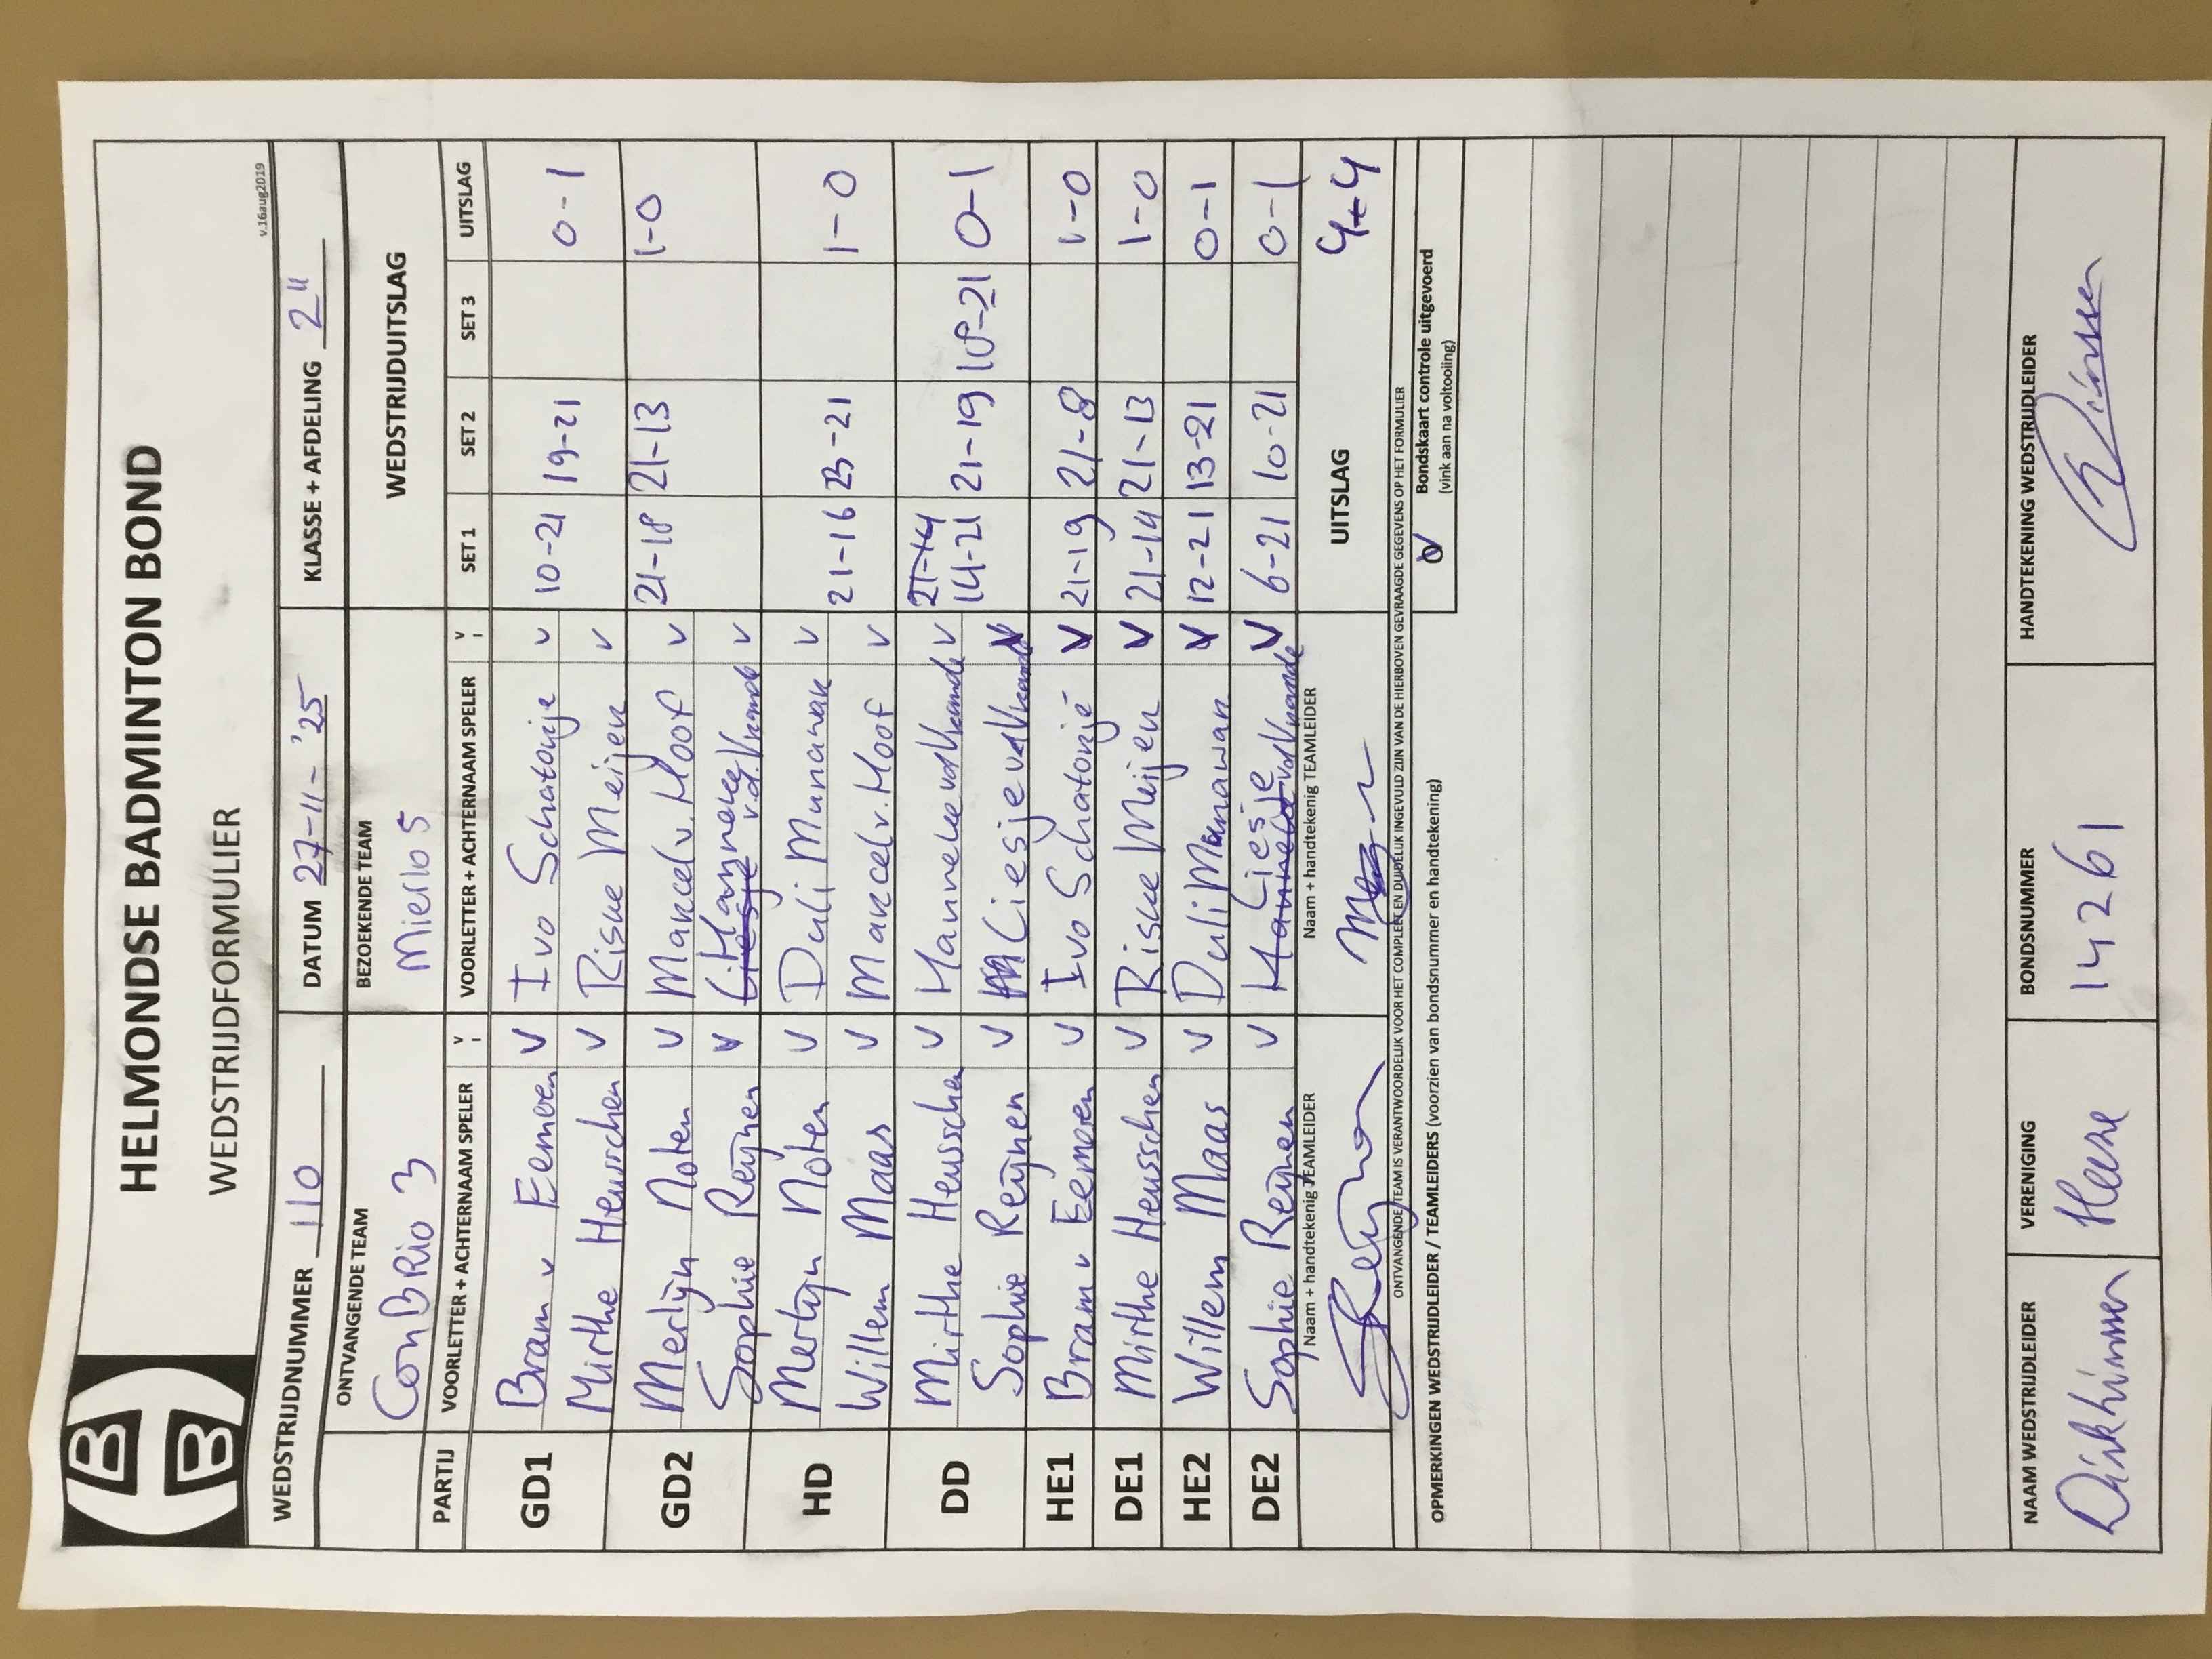 HELMONDSE BADMINTON BOND
WEDSTRIJDFORMULIER
v.16aug2019
WEDSTRIJDNUMMER 110 DATUM 27-11-'25 KLASSE + AFDELING 2"
ONTVANGENDE TEAM BEZOEKENDE TEAM WEDSTRIJDUITSLAG
ConBRio 3 Mierlo 5
PARTIJ VOORLETTER + ACHTERNAAM SPELER V VOORLETTER + ACHTERNAAM SPELER V SET 1 SET 2 SET 3 UITSLAG
GD1 Bram v Eemeren V Ivo Schatorije V 10-21 19-21 0-1
Mirthe Heusschen V Riske Meijen V
GD2 Merlijn Noten V Marcel v. Hoof V 21-18 21-13 1-0
Sophie Reijnen V Liesje Hanneke v.d. Vrande V
HD Merlijn Noten V Duli Munawar V 21-16 23-21 1-0
Willem Maas V Marcel v. Hoof V
DD Mirthe Heusschen V Hanneke vd Vrande V 21-14 14-21 21-19 18-21 0-1
Sophie Reijnen V Liesje vd Vrande V
HE1 Bram v Eemeren V Ivo Schatorijé V 21-19 21-8 1-0
DE1 Mirthe Heusschen V Riske Meijen V 21-14 21-13 1-0
HE2 Willem Maas V Duli Munawar V 12-21 13-21 0-1
DE2 Sophie Reijnen V Hanneke Liesje vd Vrande V 6-21 10-21 0-1
Naam + handtekenig TEAMLEIDER Naam + handtekenig TEAMLEIDER UITSLAG 4-4
ONTVANGENDE TEAM IS VERANTWOORDELIJK VOOR HET COMPLEET EN DUIDELIJK INGEVULD ZIJN VAN DE HIERBOVEN GEVRAAGDE GEGEVENS OP HET FORMULIER
OPMERKINGEN WEDSTRIJDLEIDER / TEAMLEIDERS (voorzien van bondsnummer en handtekening)
Bondskaart controle uitgevoerd
(vink aan na voltooiing)
NAAM WEDSTRIJDLEIDER VERENIGING BONDSNUMMER HANDTEKENING WEDSTRIJDLEIDER
Heeze 14261